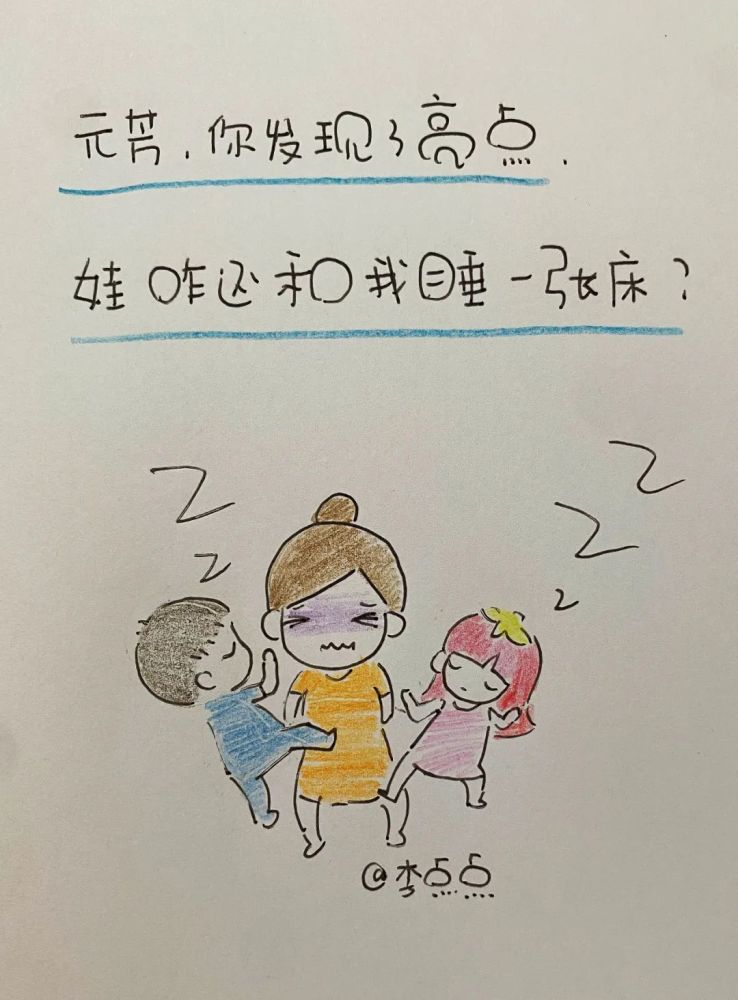 元芳,你发现了亮点.
娃咋还和我睡一张床?
Z
Z
Z
Z
Z
@李点点